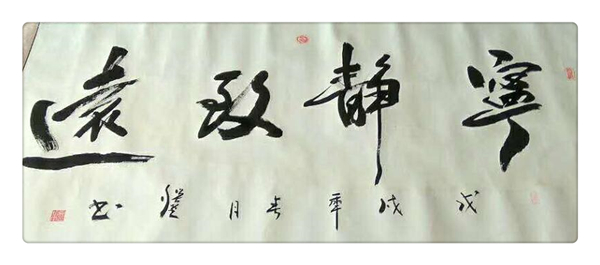 寧靜致遠
戊戌年春月 书